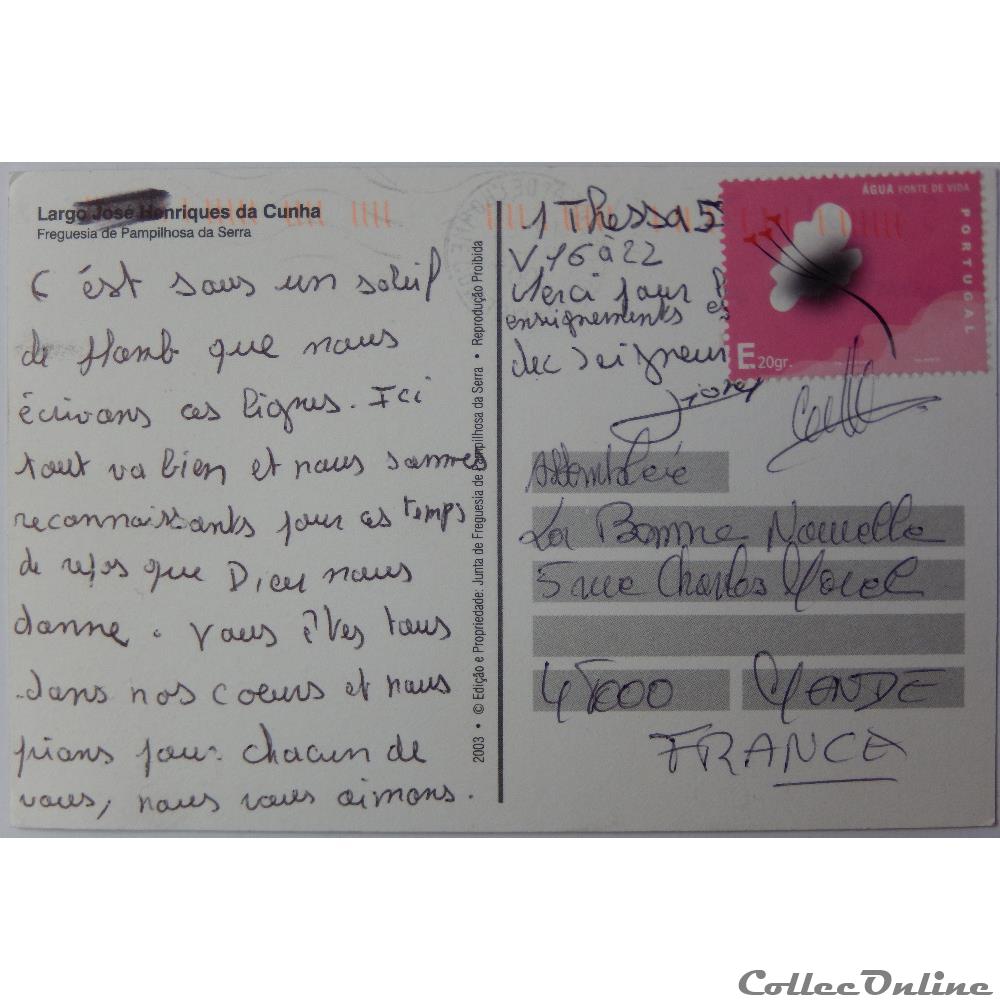 Largo José Henriques da Cunha
Freguesia de Pampilhosa da Serra
C'ést sous un soleil
de flomb que nous
écrivons ces lignes. Ici
tout va bien et nous sommes
reconnaissants pour ces temps
de repos que Dieu nous
donne. Vous êtes tous
dans nos coeurs et nous
prions pour chacun de
vous, nous vous aimons.
2003 • © Edição e Propriedade: Junta de Freguesia de Pampilhosa da Serra • Reprodução Proibida
1 Thessa 5
V 16 à 22
Merci pour
enseignements
Seigneur
ÁGUA FONTE DE VIDA
PORTUGAL
E 20gr.
Assemblée
La Bonne Nouvelle
5 rue Charles Morel
48000 MENDE
FRANCE
CollecOnline